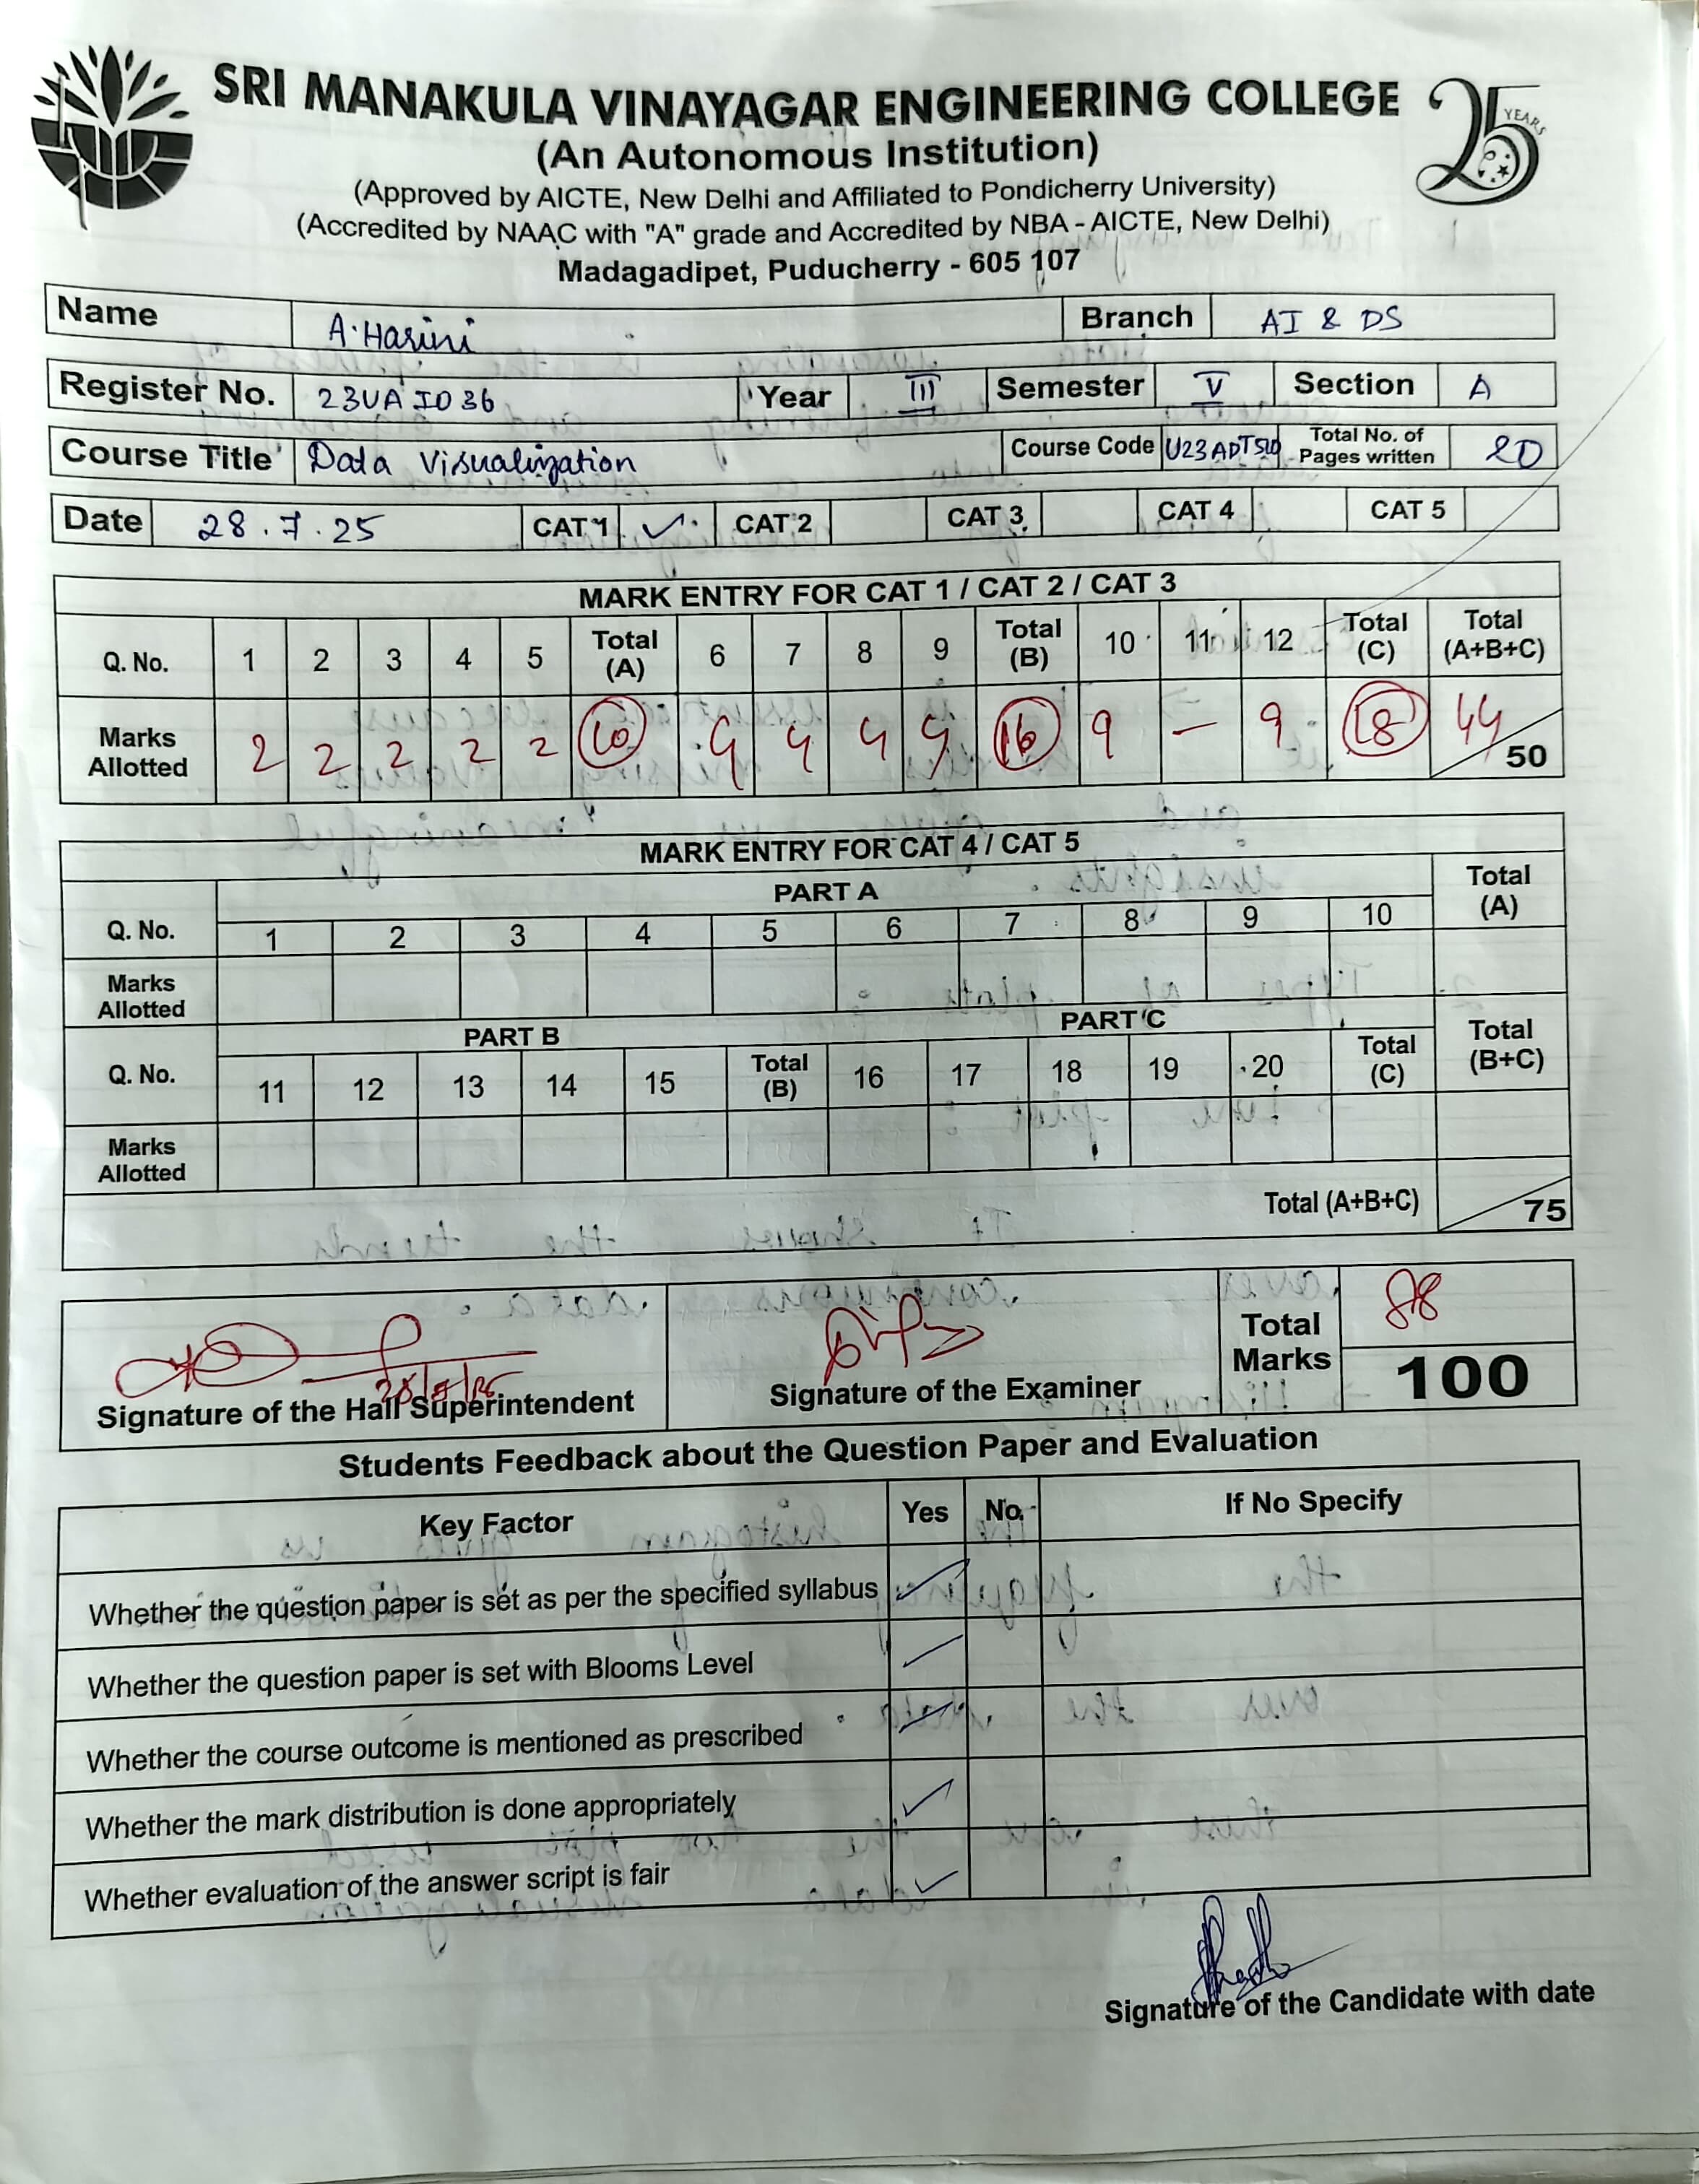 SRI MANAKULA VINAYAGAR ENGINEERING COLLEGE
25 YEARS
(An Autonomous Institution)
(Approved by AICTE, New Delhi and Affiliated to Pondicherry University)
(Accredited by NAAC with "A" grade and Accredited by NBA - AICTE, New Delhi)
Madagadipet, Puducherry - 605 107
Name A.Harini Branch AI & DS
Register No. 23UAI036 Year III Semester V Section A
Course Title Data Visualization Course Code U23ADT510 Total No. of Pages written 20
Date 28.7.25 CAT 1 ✓ CAT 2 CAT 3 CAT 4 CAT 5
MARK ENTRY FOR CAT 1 / CAT 2 / CAT 3
Q. No. 1 2 3 4 5 Total (A) 6 7 8 9 Total (B) 10 11 12 Total (C) Total (A+B+C)
Marks Allotted 2 2 2 2 2 10 4 4 4 4 16 9 – 9 18 44/50
MARK ENTRY FOR CAT 4 / CAT 5
PART A Total (A)
Q. No. 1 2 3 4 5 6 7 8 9 10
Marks Allotted
PART B PART C
Q. No. 11 12 13 14 15 Total (B) 16 17 18 19 20 Total (C) Total (B+C)
Marks Allotted
Total (A+B+C) 75
Signature of the Hall Superintendent Signature of the Examiner Total Marks 88
100
Students Feedback about the Question Paper and Evaluation
Key Factor Yes No. If No Specify
Whether the question paper is set as per the specified syllabus ✓
Whether the question paper is set with Blooms Level ✓
Whether the course outcome is mentioned as prescribed ✓
Whether the mark distribution is done appropriately ✓
Whether evaluation of the answer script is fair ✓
Signature of the Candidate with date